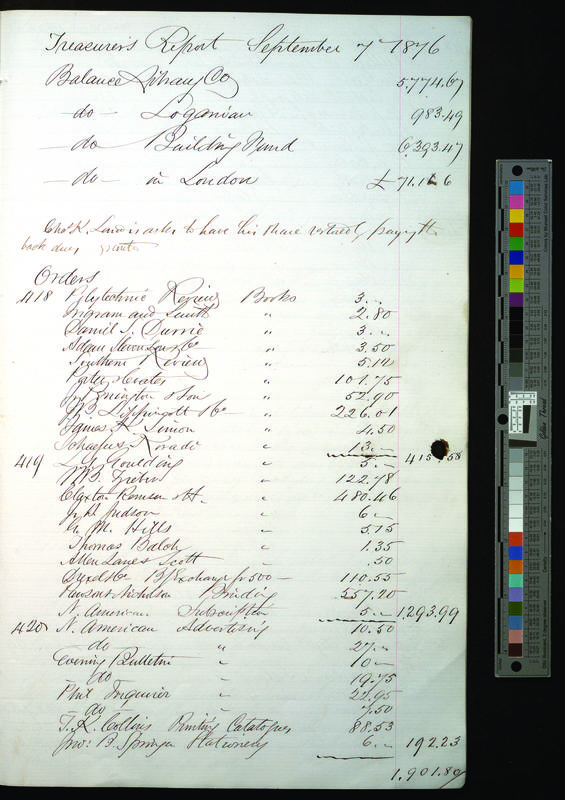 Treasurer's Report September 7th 1876
Balance Library Co 5.774.67
—do— Loganian 983.49
—do— Building Fund 6.393.47
—do— in London £ 71.1 6
Chas K. asks to have his share restored, paying the
back dues granted
Orders
418 Polytechnic Review Books 3.—
Ingram and Smith " 2.80
Daniel S. Durrie " 3.—
" 3.50
Southern Review " 5.14
Porter & Coates " 101.75
Jno Pennington & Son " 52.90
J.B. Lippincott & Co " 226.01
James R. Simon " 4.50
Schaefer & Koradi " 13.— 415.58
419 Goulding " 5.—
" 122.78
Claxton Remsen & H. " 480.46
Judson " 6—
M. Hills " 5.15
Thomas Balch " 1.35
Allen Lanes Scott " .50
Drexel & Co B/Exchange fr 500— 110.55
Pawson & Nicholson Binding 557.20
N. American Subscription 5.— 1,293.99
420 N. American Advertising 10.50
do " 27.—
Evening Bulletin " 10—
do " 19.75
Phil Inquirer " 22.95
do " 7.50
T.K. Collins Printing Catalogues 88.53
Jno: B. Springer Stationery 6.— 192.23
1.901.80